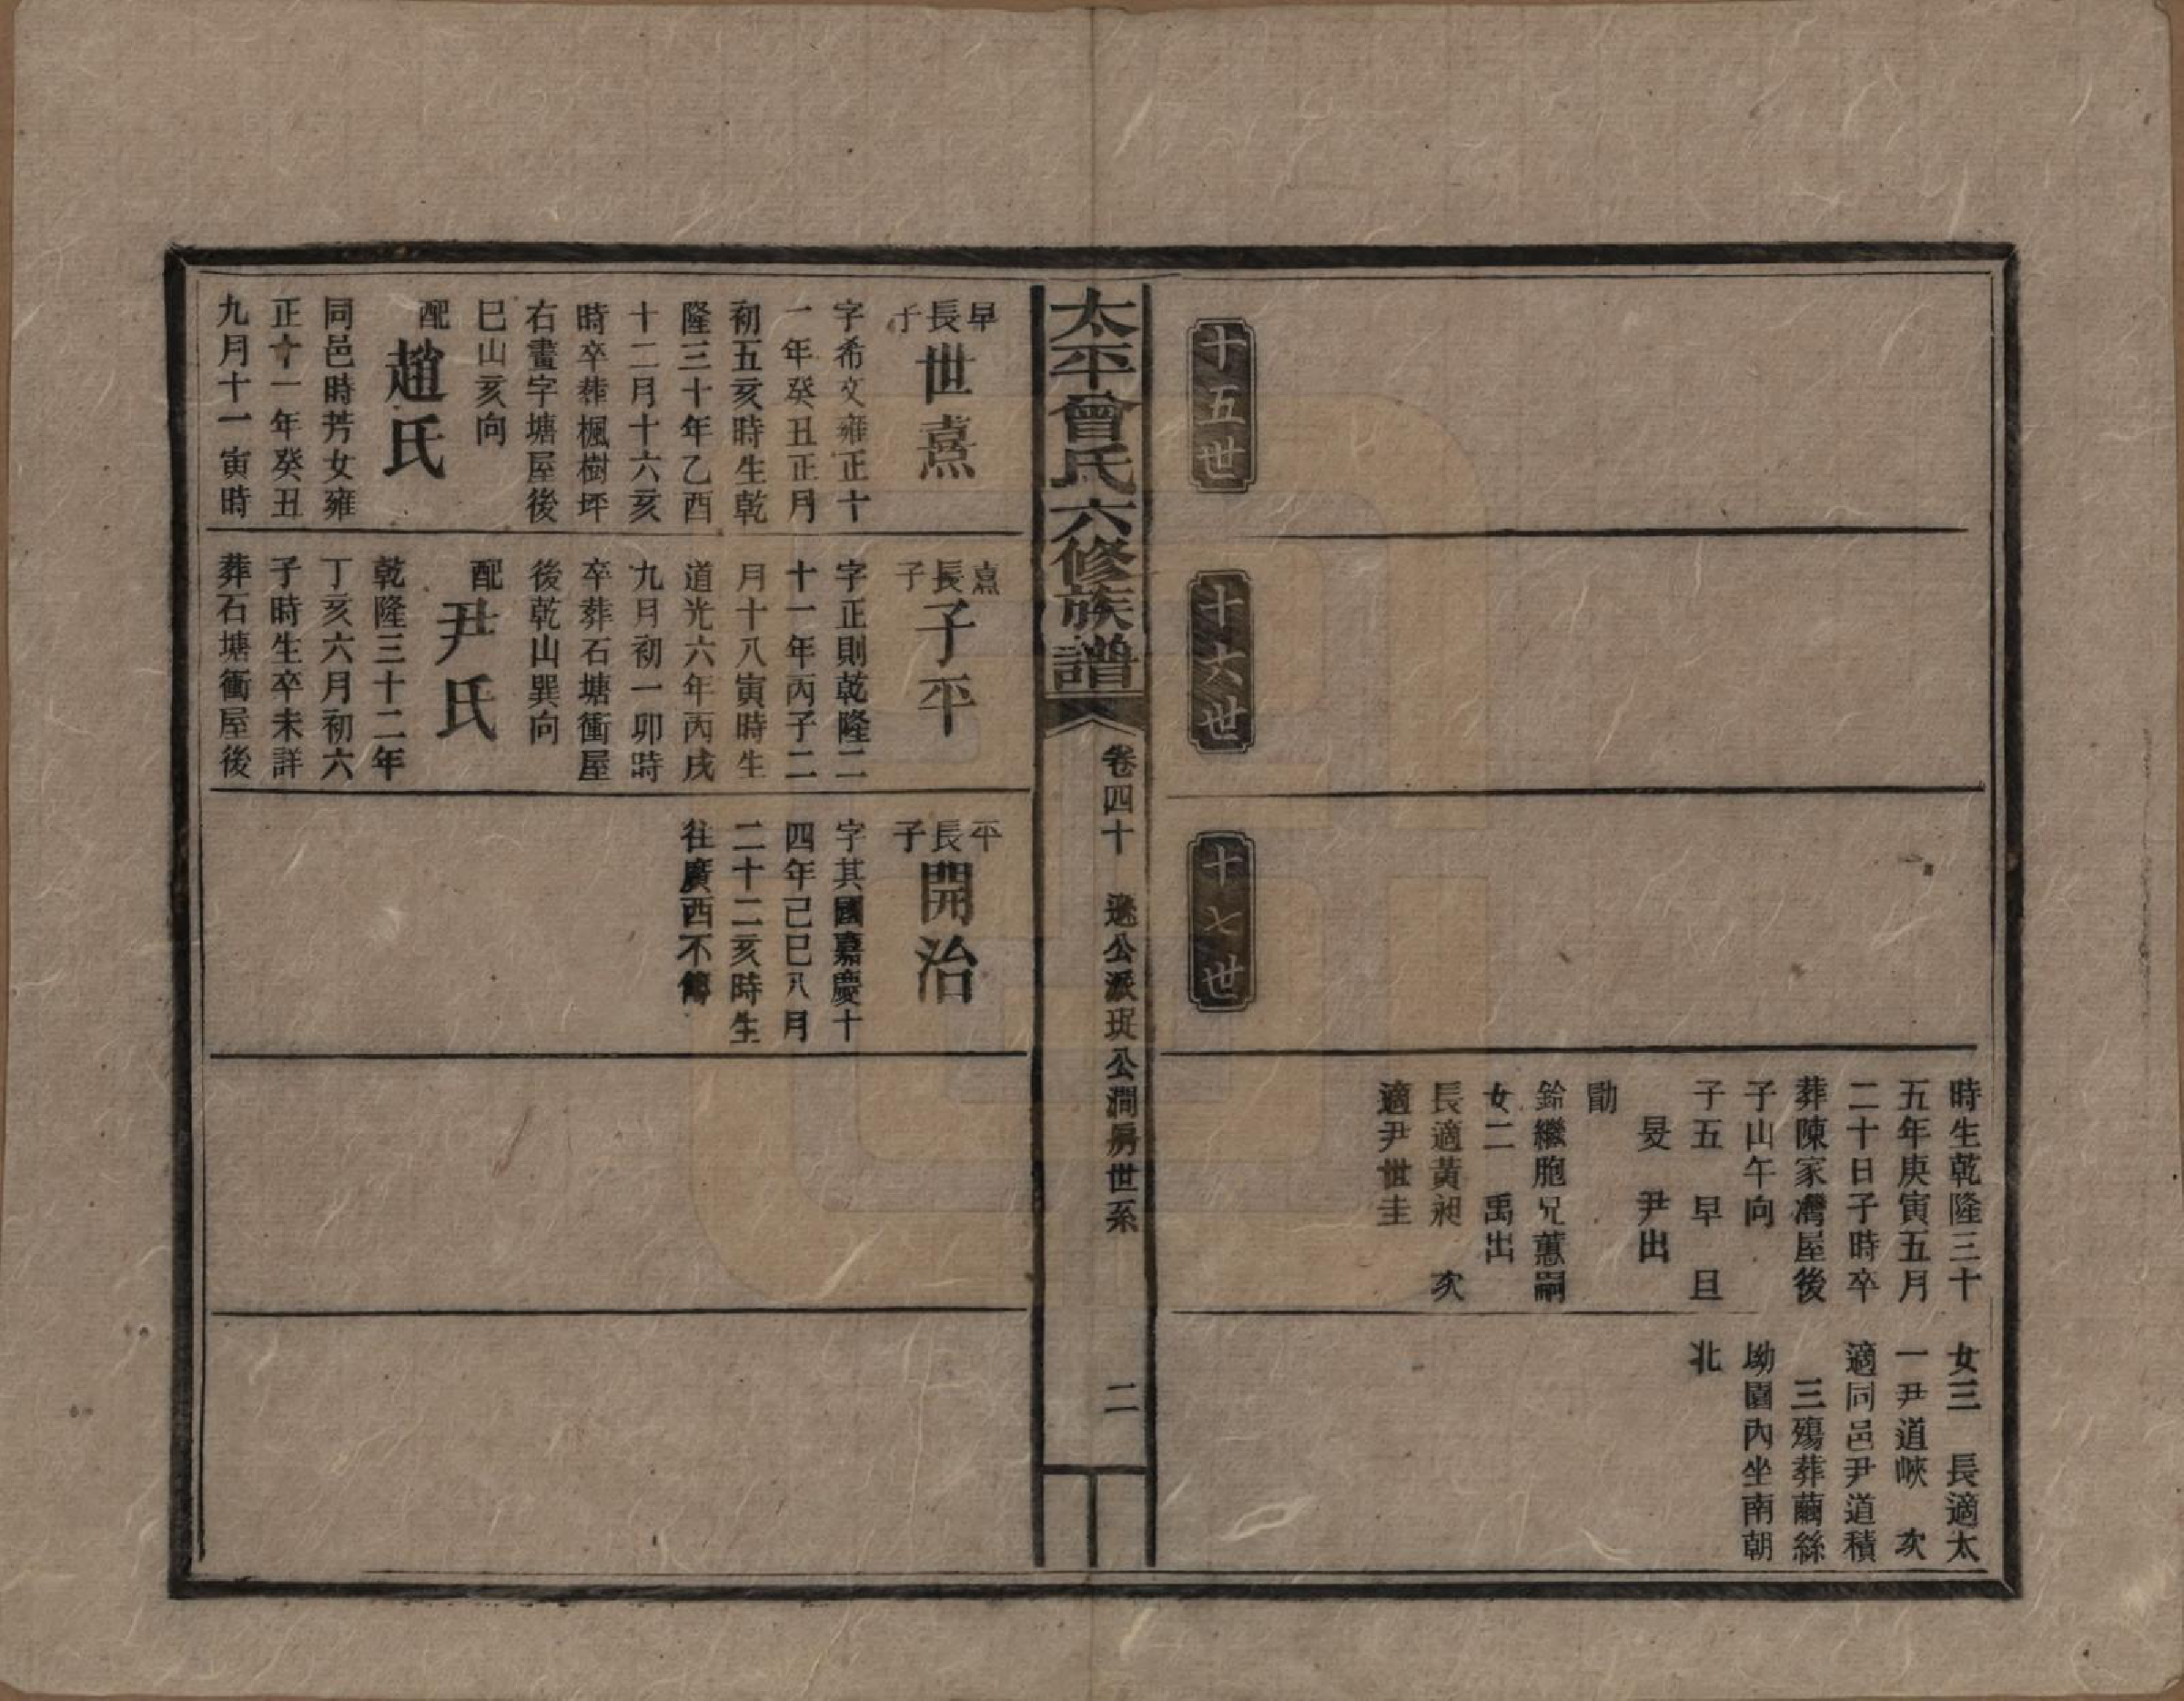 時生乾隆三十
五年庚寅五月
二十日子時卒
葬陳家灣屋後
子山午向
子五 早 旦
旻 尹出
勖
鈴繼胞兄蕙嗣
女二 禹出
長適黃昶 次
適尹世圭
女三 長適太
一尹道峽 次
適同邑尹道積
三殤葬繭絲
坳園內坐南朝
北
十五世
十六世
十七世
太平曾氏六修族譜
卷四十 公派珽公澗房世系
二
早長子
世熹
字希文雍正十
一年癸丑正月
初五亥時生乾
隆三十年乙酉
十二月十六亥
時卒葬楓樹坪
右畫字塘屋後
巳山亥向
配
趙氏
同邑時芳女雍
正十一年癸丑
九月十一寅時
熹長子
子平
字正則乾隆二
十一年丙子二
月十八寅時生
道光六年丙戌
九月初一卯時
卒葬石塘衝屋
後乾山巽向
配
尹氏
乾隆三十二年
丁亥六月初六
子時生卒未詳
葬石塘衝屋後
平長子
開治
字其國嘉慶十
四年己巳八月
二十二亥時生
往廣西不傳